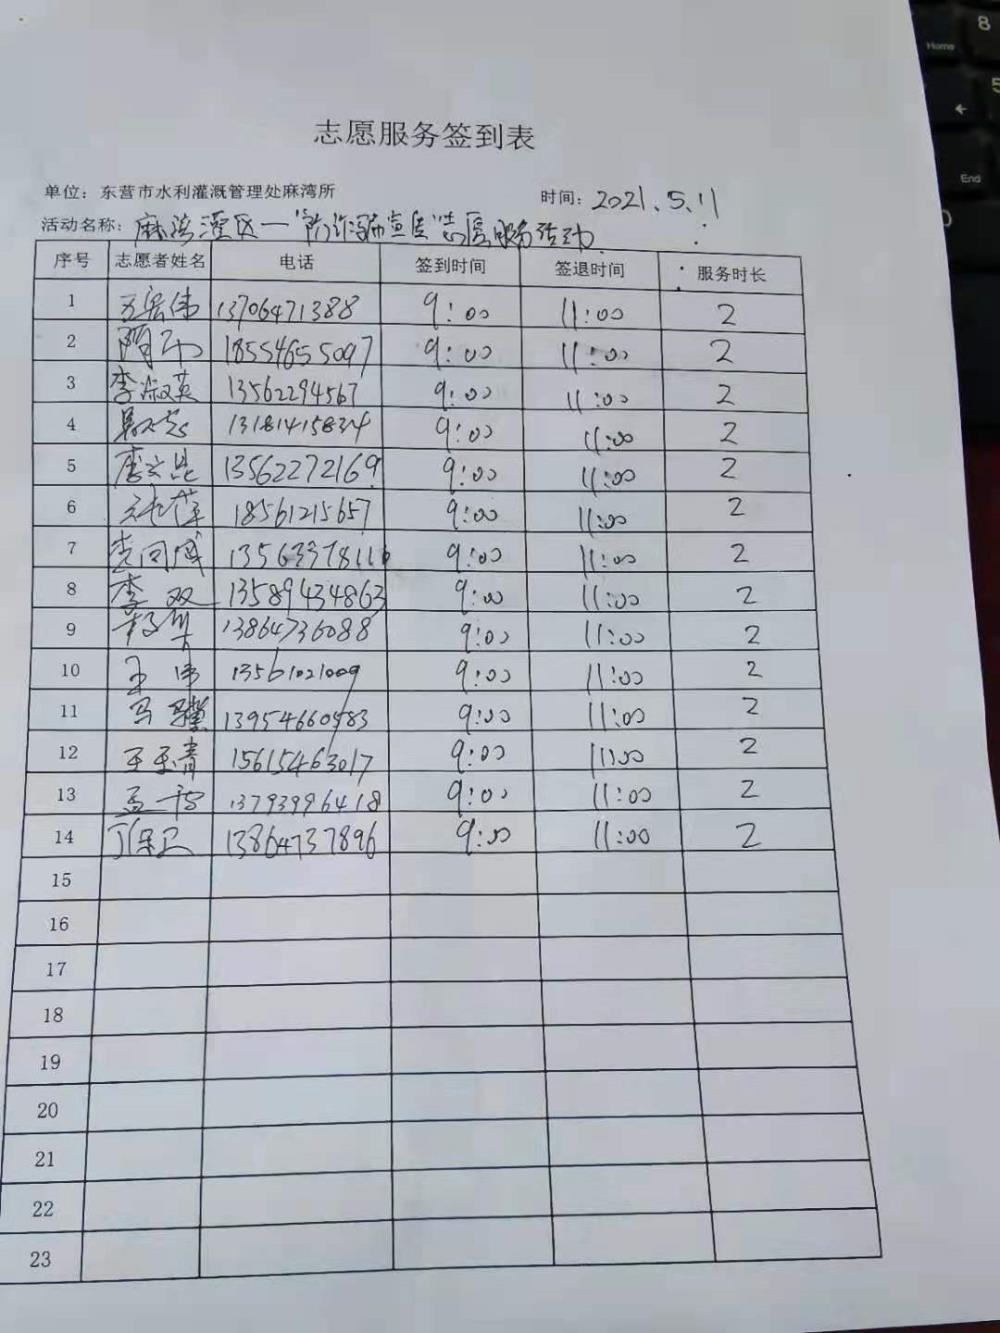 志愿服务签到表
单位：东营市水利灌溉管理处麻湾所 时间：2021.5.11
活动名称：麻湾灌区一"防诈骗宣传"志愿服务活动
序号 志愿者姓名 电话 签到时间 签退时间 服务时长
1 王宏伟 13706471388 9:00 11:00 2
2 18554655097 9:00 11:00 2
3 李淑英 13562294567 9:00 11:00 2
4 13181415834 9:00 11:00 2
5 13562272169 9:00 11:00 2
6 18561215657 9:00 11:00 2
7 13563378116 9:00 11:00 2
8 李双 13589434863 9:00 11:00 2
9 13864736088 9:00 11:00 2
10 王伟 13561021009 9:00 11:00 2
11 马骥 13954660583 9:00 11:00 2
12 王玉青 15615463017 9:00 11:00 2
13 13793996418 9:00 11:00 2
14 丁保卫 13864737896 9:00 11:00 2
15
16
17
18
19
20
21
22
23
8
Home
5
End